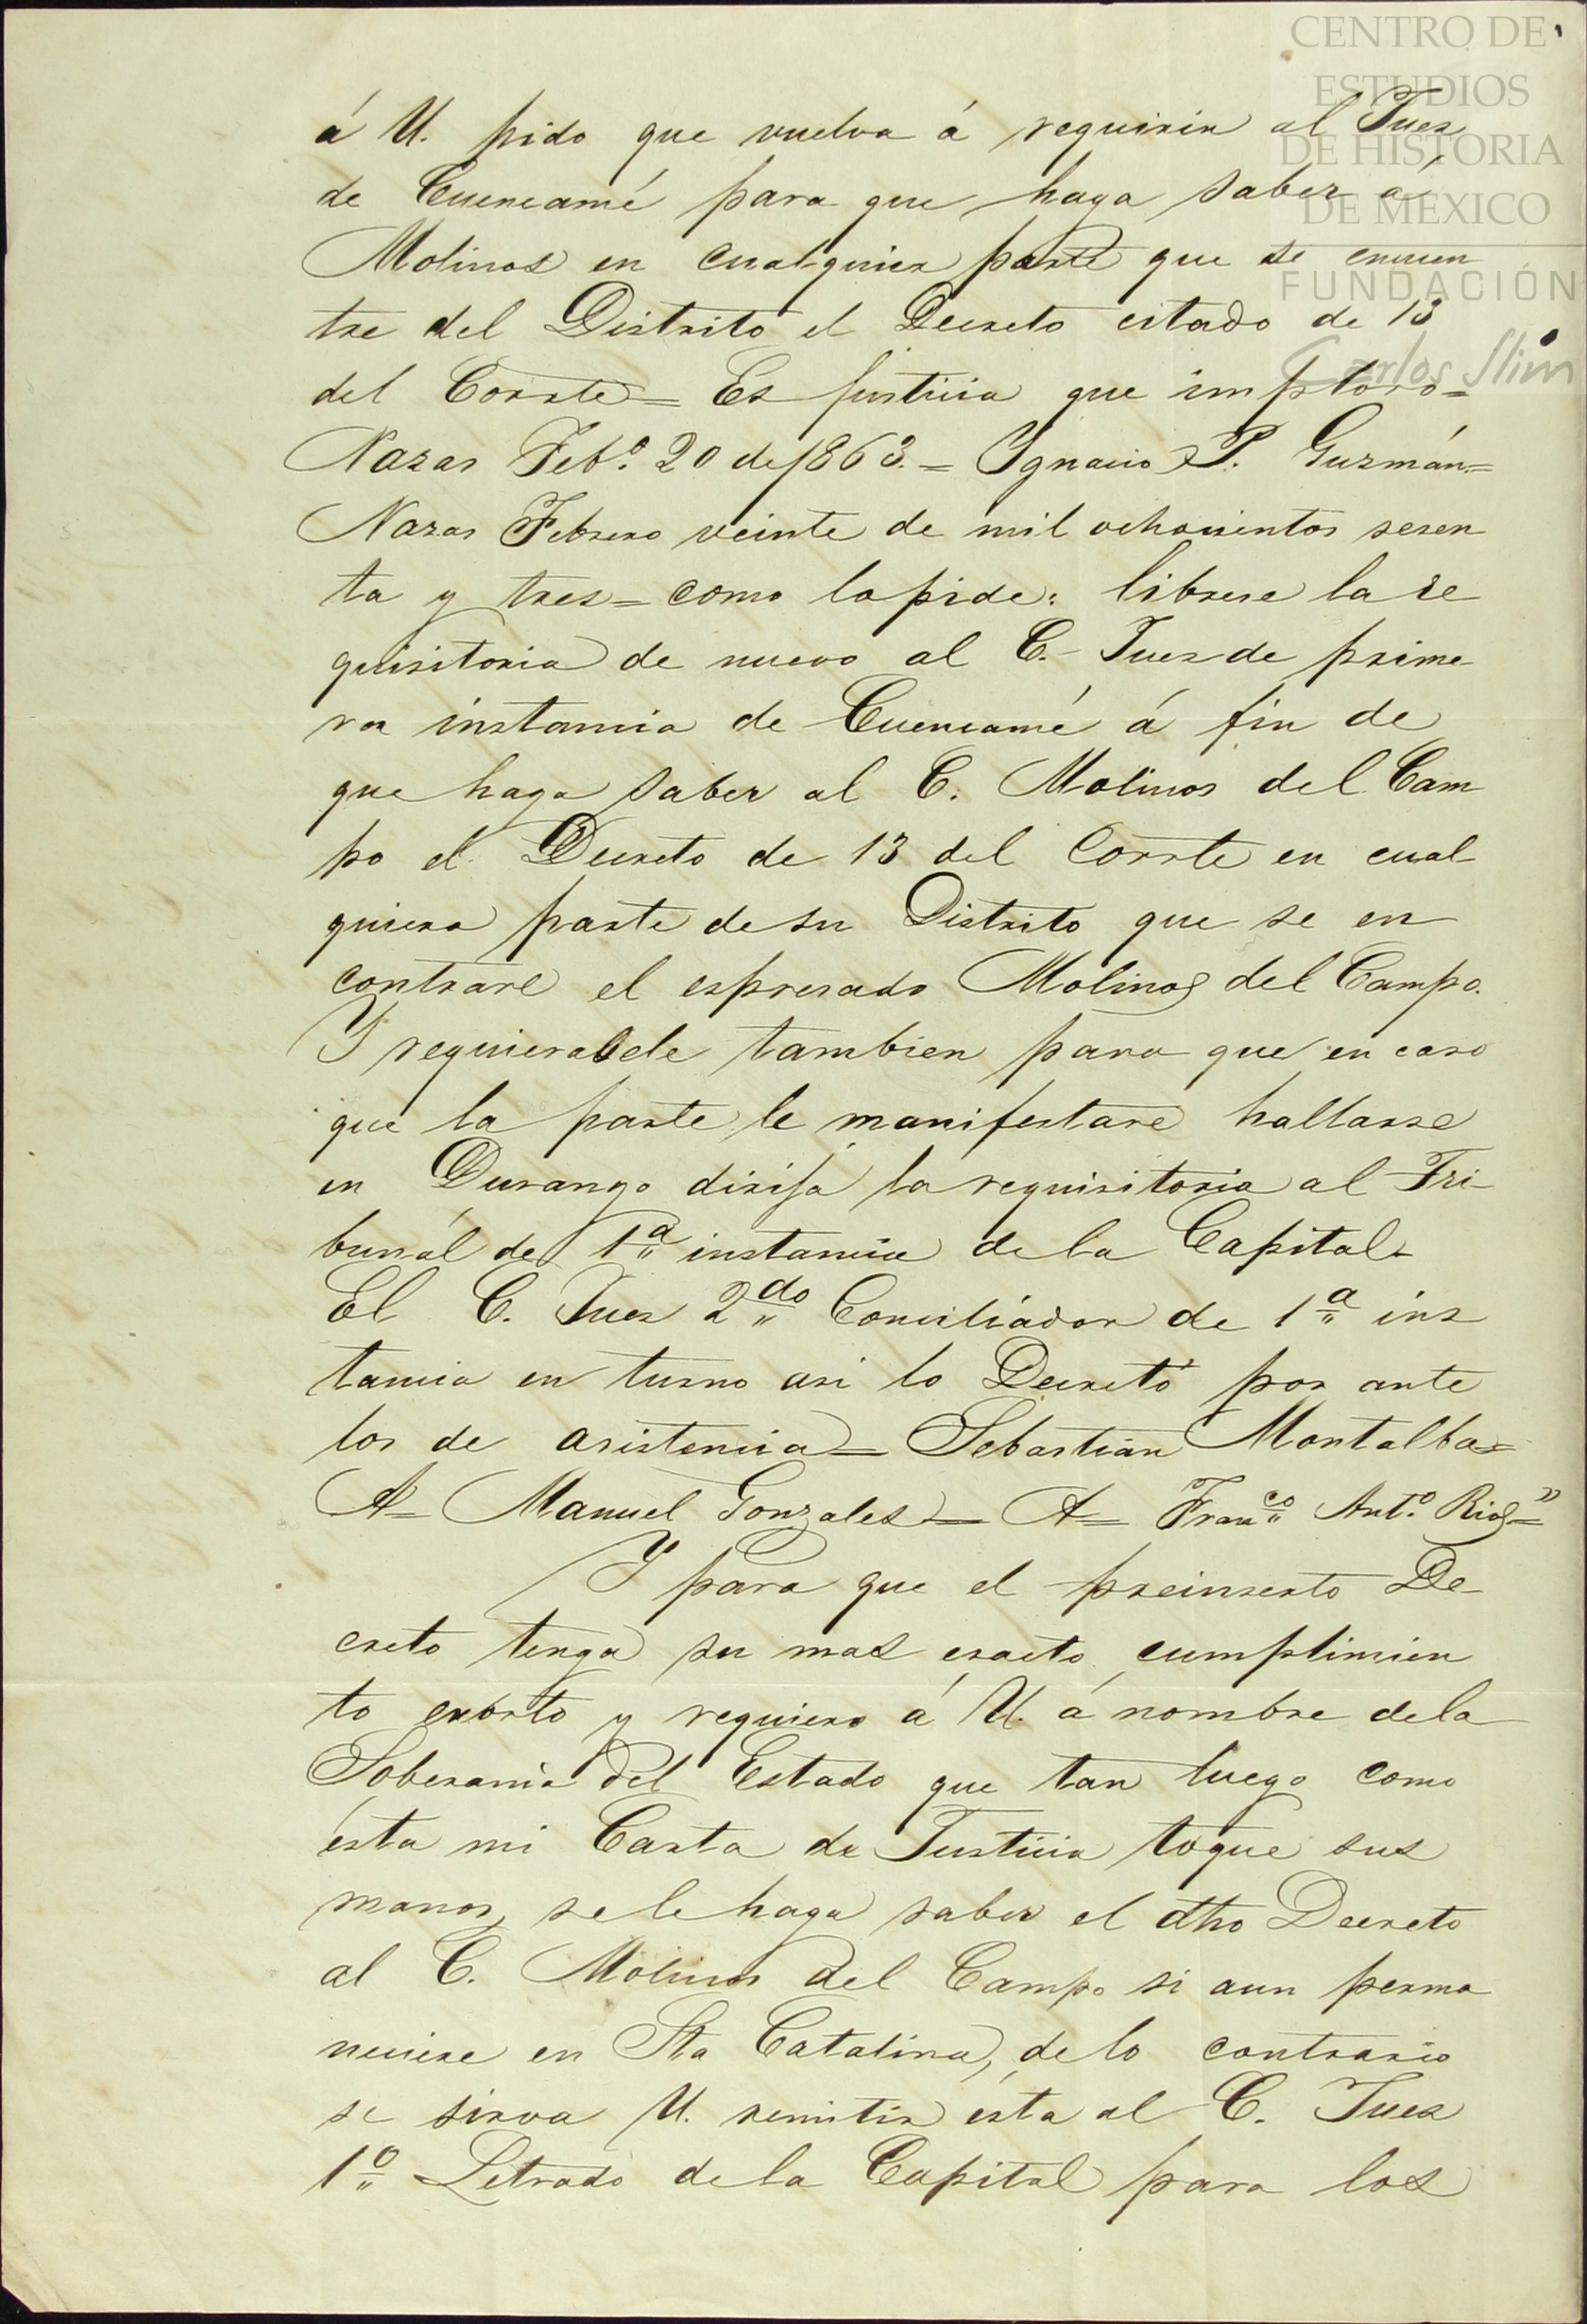 CENTRO DE
ESTUDIOS
DE HISTORIA
DE MÉXICO
FUNDACIÓN
Carlos Slim
á U. pido que vuelva á requirir al Juez
de Cuencamé para que haga saber á
Molinos en cualquier parte que se encuen
tre del Distrito el Decreto citado de 13
del Corrte = Es justicia que imploro =
Nazas Feb.o 20 de 1863. = Ygnacio P. Guzmán. =
Nazas Febrero veinte de mil ochocientos sesen
ta y tres = como lo pide: librese la re
quisitoria de nuevo al C. Juez de prime
ra instancia de Cuencamé á fin de
que haga saber al C. Molinos del Cam
po el Decreto de 13 del Corrte en cual
quiera parte de su Distrito que se en
contrare el espresado Molinos del Campo.
Y requierasele tambien para que en caso
que la parte le manifestare hallarse
en Durango dirija la requisitoria al Tri
bunál de 1ª instancia de la Capital.
El C. Juez 2do Conciliador de 1ª ins
tancia en turno asi lo Decretó por ante
los de asistencia = Sebastian Montalba =
A = Manuel Gonzales = A = Franco Ant.o Rios = "
Y para que el preinserto De-
creto tenga su mas esacto cumplimien
to exorto y requiero á U. á nombre de la
Soberania del Estado que tan luego como
ésta mi Carta de Justicia toque sus
manos, se le haga saber el dho Decreto
al C. Molinos del Campo si aun perma
neciere en Sta Catalina, de lo contrario
se sirva U. remitir ésta al C. Juez
1º Letrado de la Capital para los